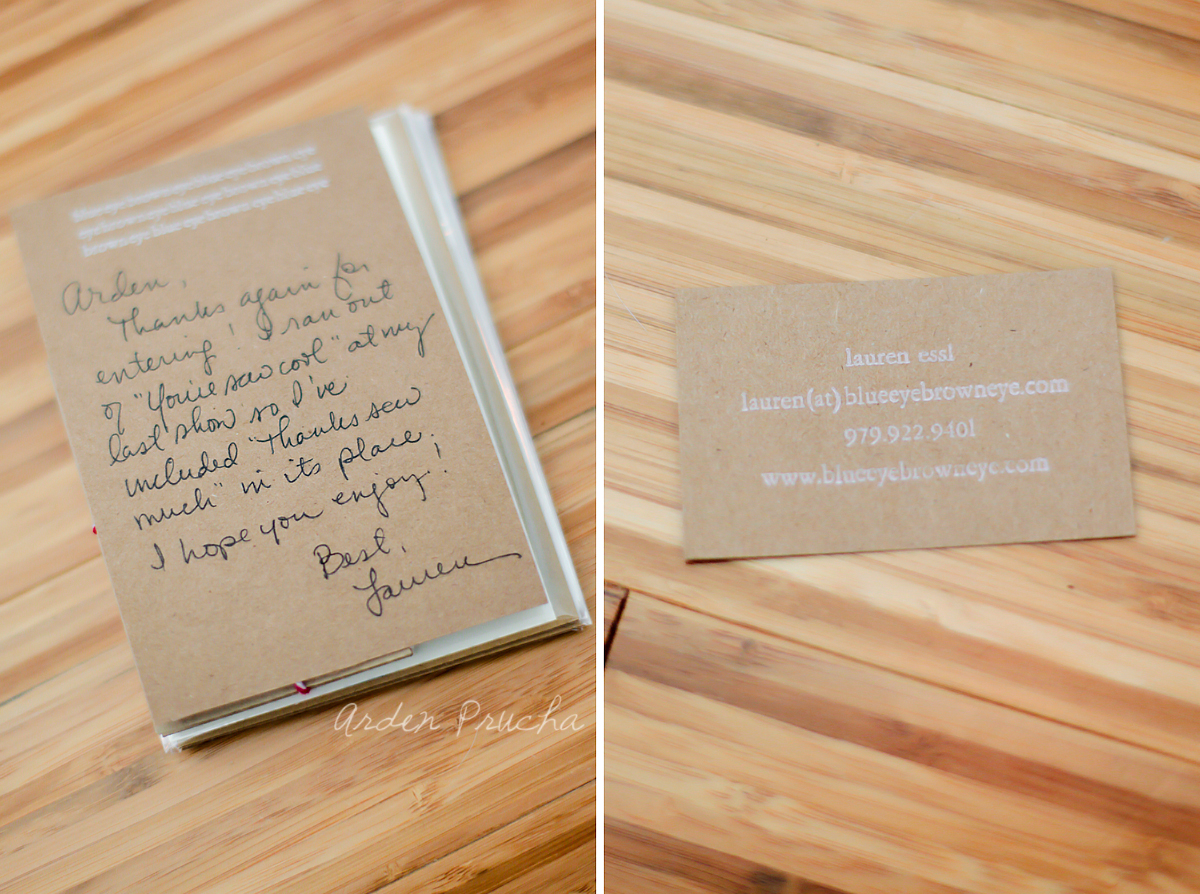 Arden,
Thanks again for
entering! I ran out
of "You're sew cool" at my
last show so I've
included "Thanks sew
much" in its place,
I hope you enjoy!
Best,
Lauren
Arden Prucha
lauren essl
lauren(at)blueeyebrowneye.com
979.922.9401
www.blueeyebrowneye.com